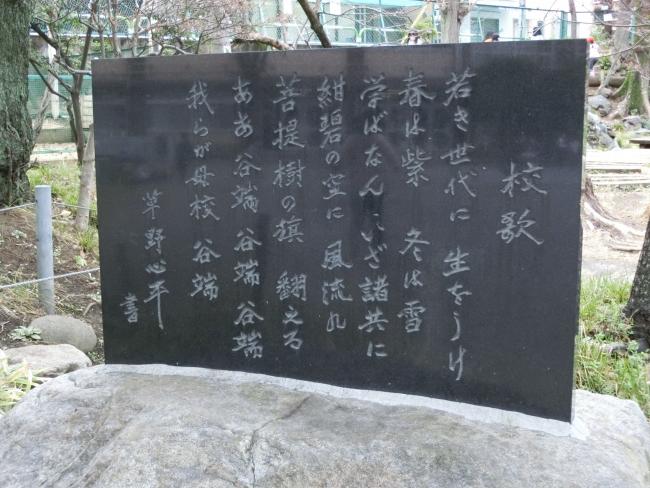 校歌
若き世代に 生をうけ
春は紫 冬は雪
学ばなん いざ諸共に
紺碧の空に 風流れ
菩提樹の旗 翻える
ああ 谷端 谷端 谷端
我らが母校 谷端
草野心平
書